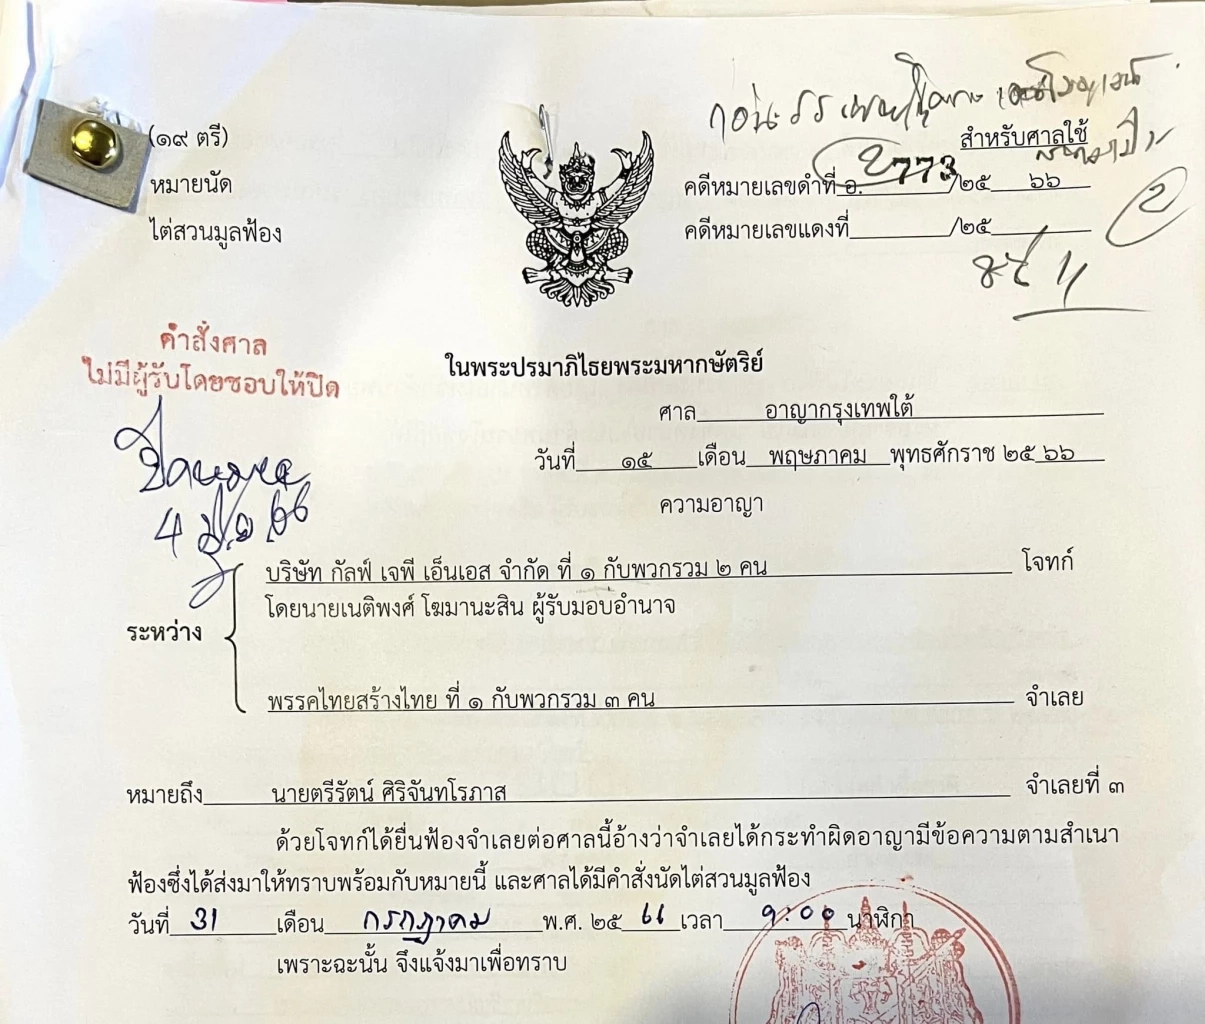 (๑๙ ตรี)
หมายนัด
ไต่สวนมูลฟ้อง
สำหรับศาลใช้
คดีหมายเลขดำที่ อ. 2773 /๒๕ ๖๖
คดีหมายเลขแดงที่ /๒๕
2
คำสั่งศาล
ไม่มีผู้รับโดยชอบให้ปิด
ปิดหมาย
4 มิ.ย. 66
ในพระปรมาภิไธยพระมหากษัตริย์
ศาล อาญากรุงเทพใต้
วันที่ ๑๕ เดือน พฤษภาคม พุทธศักราช ๒๕ ๖๖
ความอาญา
ระหว่าง
บริษัท กัลฟ์ เจพี เอ็นเอส จำกัด ที่ ๑ กับพวกรวม ๒ คน โจทก์
โดยนายเนติพงศ์ โฆมานะสิน ผู้รับมอบอำนาจ
พรรคไทยสร้างไทย ที่ ๑ กับพวกรวม ๓ คน จำเลย
หมายถึง นายตรีรัตน์ ศิริจันทโรภาส จำเลยที่ ๓
ด้วยโจทก์ได้ยื่นฟ้องจำเลยต่อศาลนี้อ้างว่าจำเลยได้กระทำผิดอาญามีข้อความตามสำเนา
ฟ้องซึ่งได้ส่งมาให้ทราบพร้อมกับหมายนี้ และศาลได้มีคำสั่งนัดไต่สวนมูลฟ้อง
วันที่ 31 เดือน กรกฎาคม พ.ศ. ๒๕ ๖๖ เวลา 9:00 นาฬิกา
เพราะฉะนั้น จึงแจ้งมาเพื่อทราบ